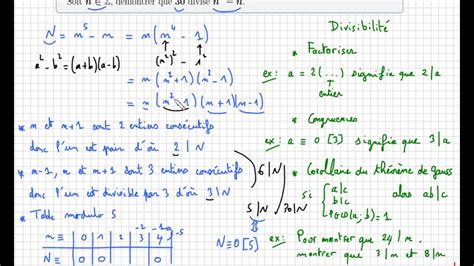 Soit n ∈ ℤ, démontrer que 30 divise n⁵ - n.
N = n⁵ - n = n(n⁴ - 1)
a² - b² = (a+b)(a-b) (n²)² - 1²
= n(n²+1)(n²-1)
= n(n²+1)(n+1)(n-1)
* n et n+1 sont 2 entiers consécutifs
donc l'un est pair d'où 2|N
* n-1, n et n+1 sont 3 entiers consécutifs
donc l'un est divisible par 3 d'où 3|N
6|N
5|N
30|N
* Table modulo 5
-2 -1 0 -5
n ≡ 0 1 2 3 4
N ≡ 0 0 0 0 0
N ≡ 0 [5]
Divisibilité
* Factoriser
ex: a = 2(...) signifie que 2|a
entier
* Congruences
ex: a ≡ 0 [3] signifie que 3|a
* Corollaire du théorème de gauss
si { a|c
b|c
PGCD(a;b) = 1
alors ab|c
ex: Pour montrer que 24|n,
montrer que 3|n et 8|n